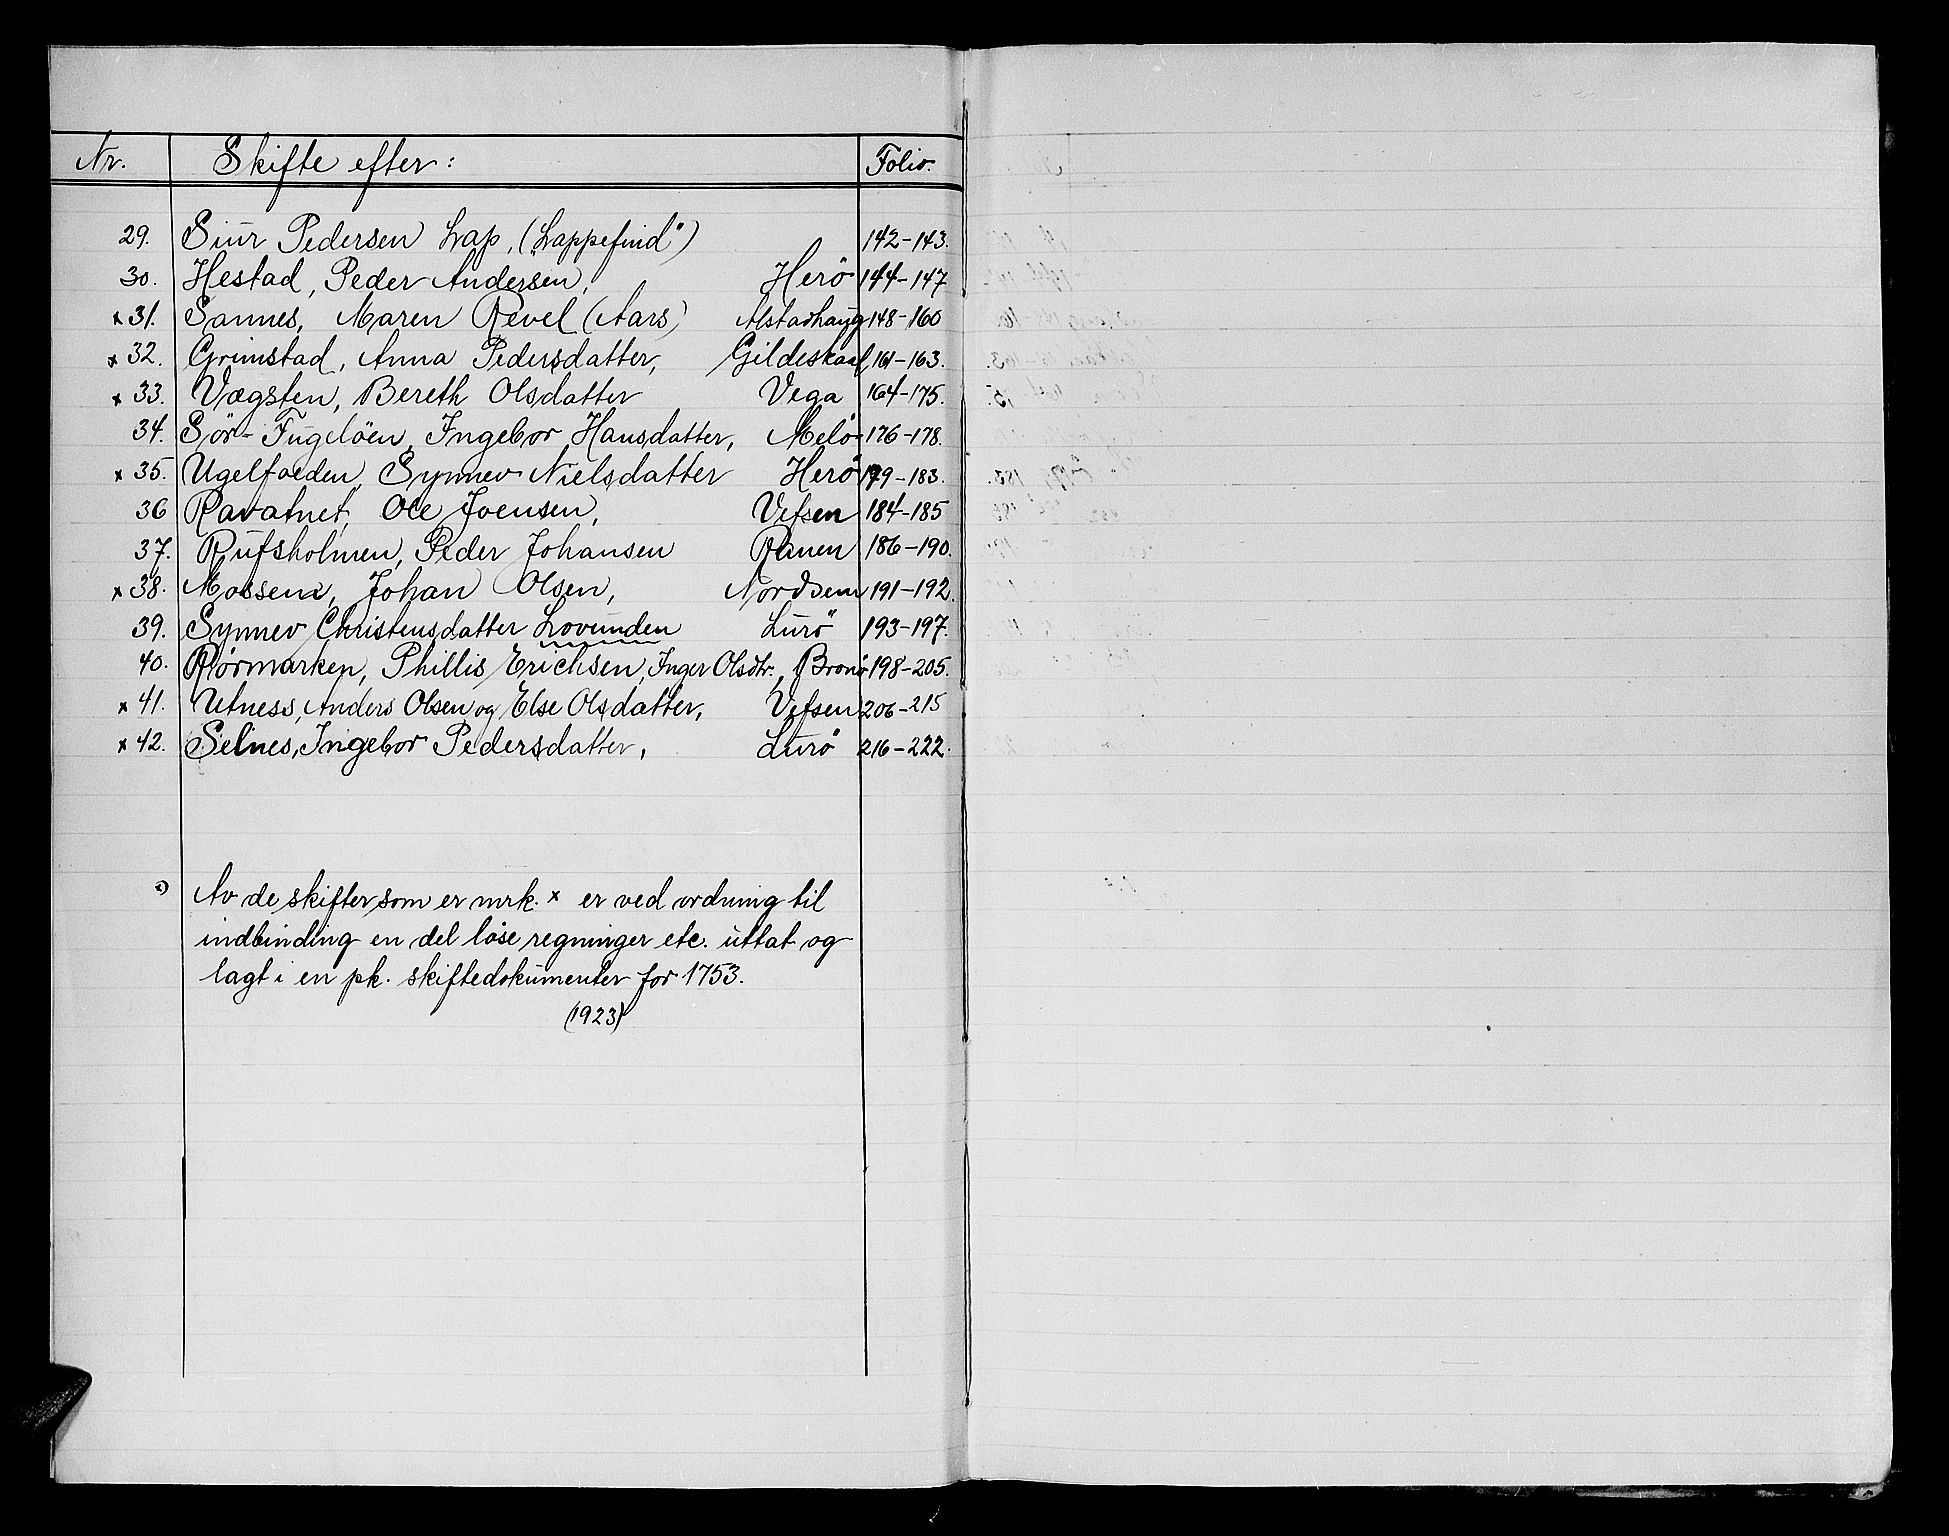 Nr. Skifte efter: Folio.
29. Siur Pedersen Lap, („Lappefind") 142-143.
30. Hestad, Peder Andersen, Herö 144-147
x 31. Sannes, Maren Revel (Aars) Alstadhaug 148-160
x 32. Grimstad, Anna Pedersdatter, Gildeskaal, 161-163.
x 33. Vægsten, Bereth Olsdatter Vega 164-175.
34. Sör-Fugelöen, Ingebor Hansdatter, Melö 176-178.
x 35. Ugelfoeden, Synnev Nielsdatter Herö 179-183.
36 Ravatnet, Ole Joensen, Vefsen 184-185
37. Rufsholmen, Peder Johansen Ranen 186-190.
x 38. Mossem, Johan Olsen, Nordsem 191-192.
39. Synnev Christensdatter Lovunden Lurö 193-197.
40. Rørmarken, Phillis Erichsen, Inger Olsdtr., Bronö 198-205.
x 41. Utness, Anders Olsen og Else Olsdatter, Vefsen 206-215
x 42. Selnes, Ingebor Pedersdatter, Lurö 216-222.
x) Av de skifter som er mrk. x er ved ordning til
indbinding en del løse regninger etc. uttat og
lagt i en pk. skiftedokumenter for 1753.
(1923)